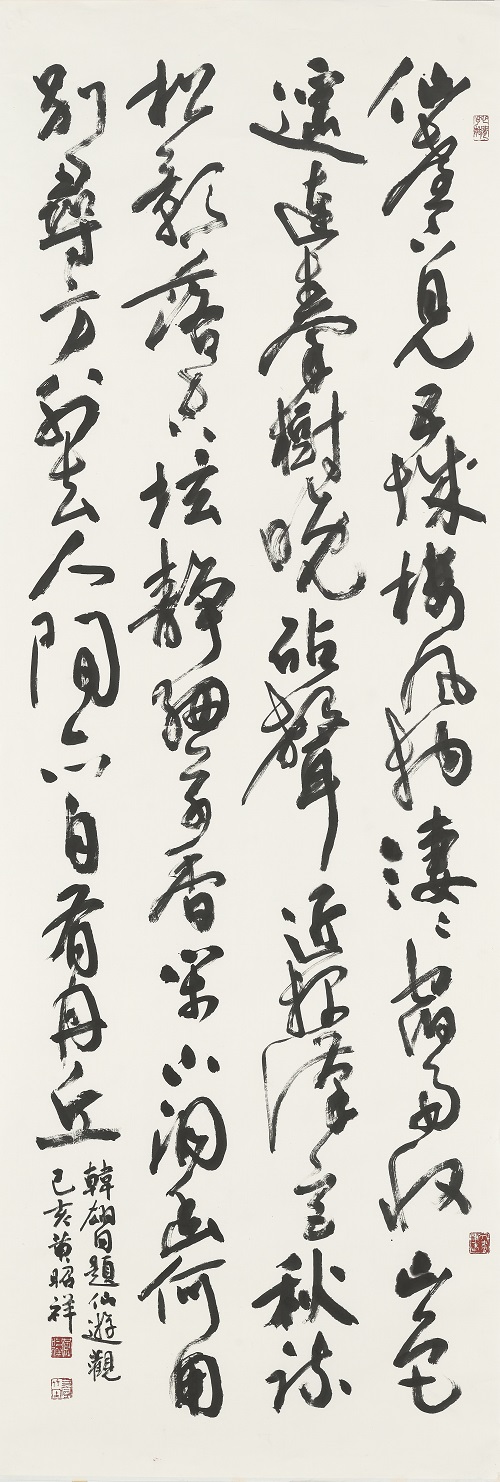 仙臺下見五城樓風物淒淒宿雨收山色
遙連秦樹晚砧聲近報漢宮秋疏
松影落空壇靜細草香閑小洞幽何用
別尋方外去人間亦自有丹丘
韓翃同題仙遊觀
己亥黃昭祥